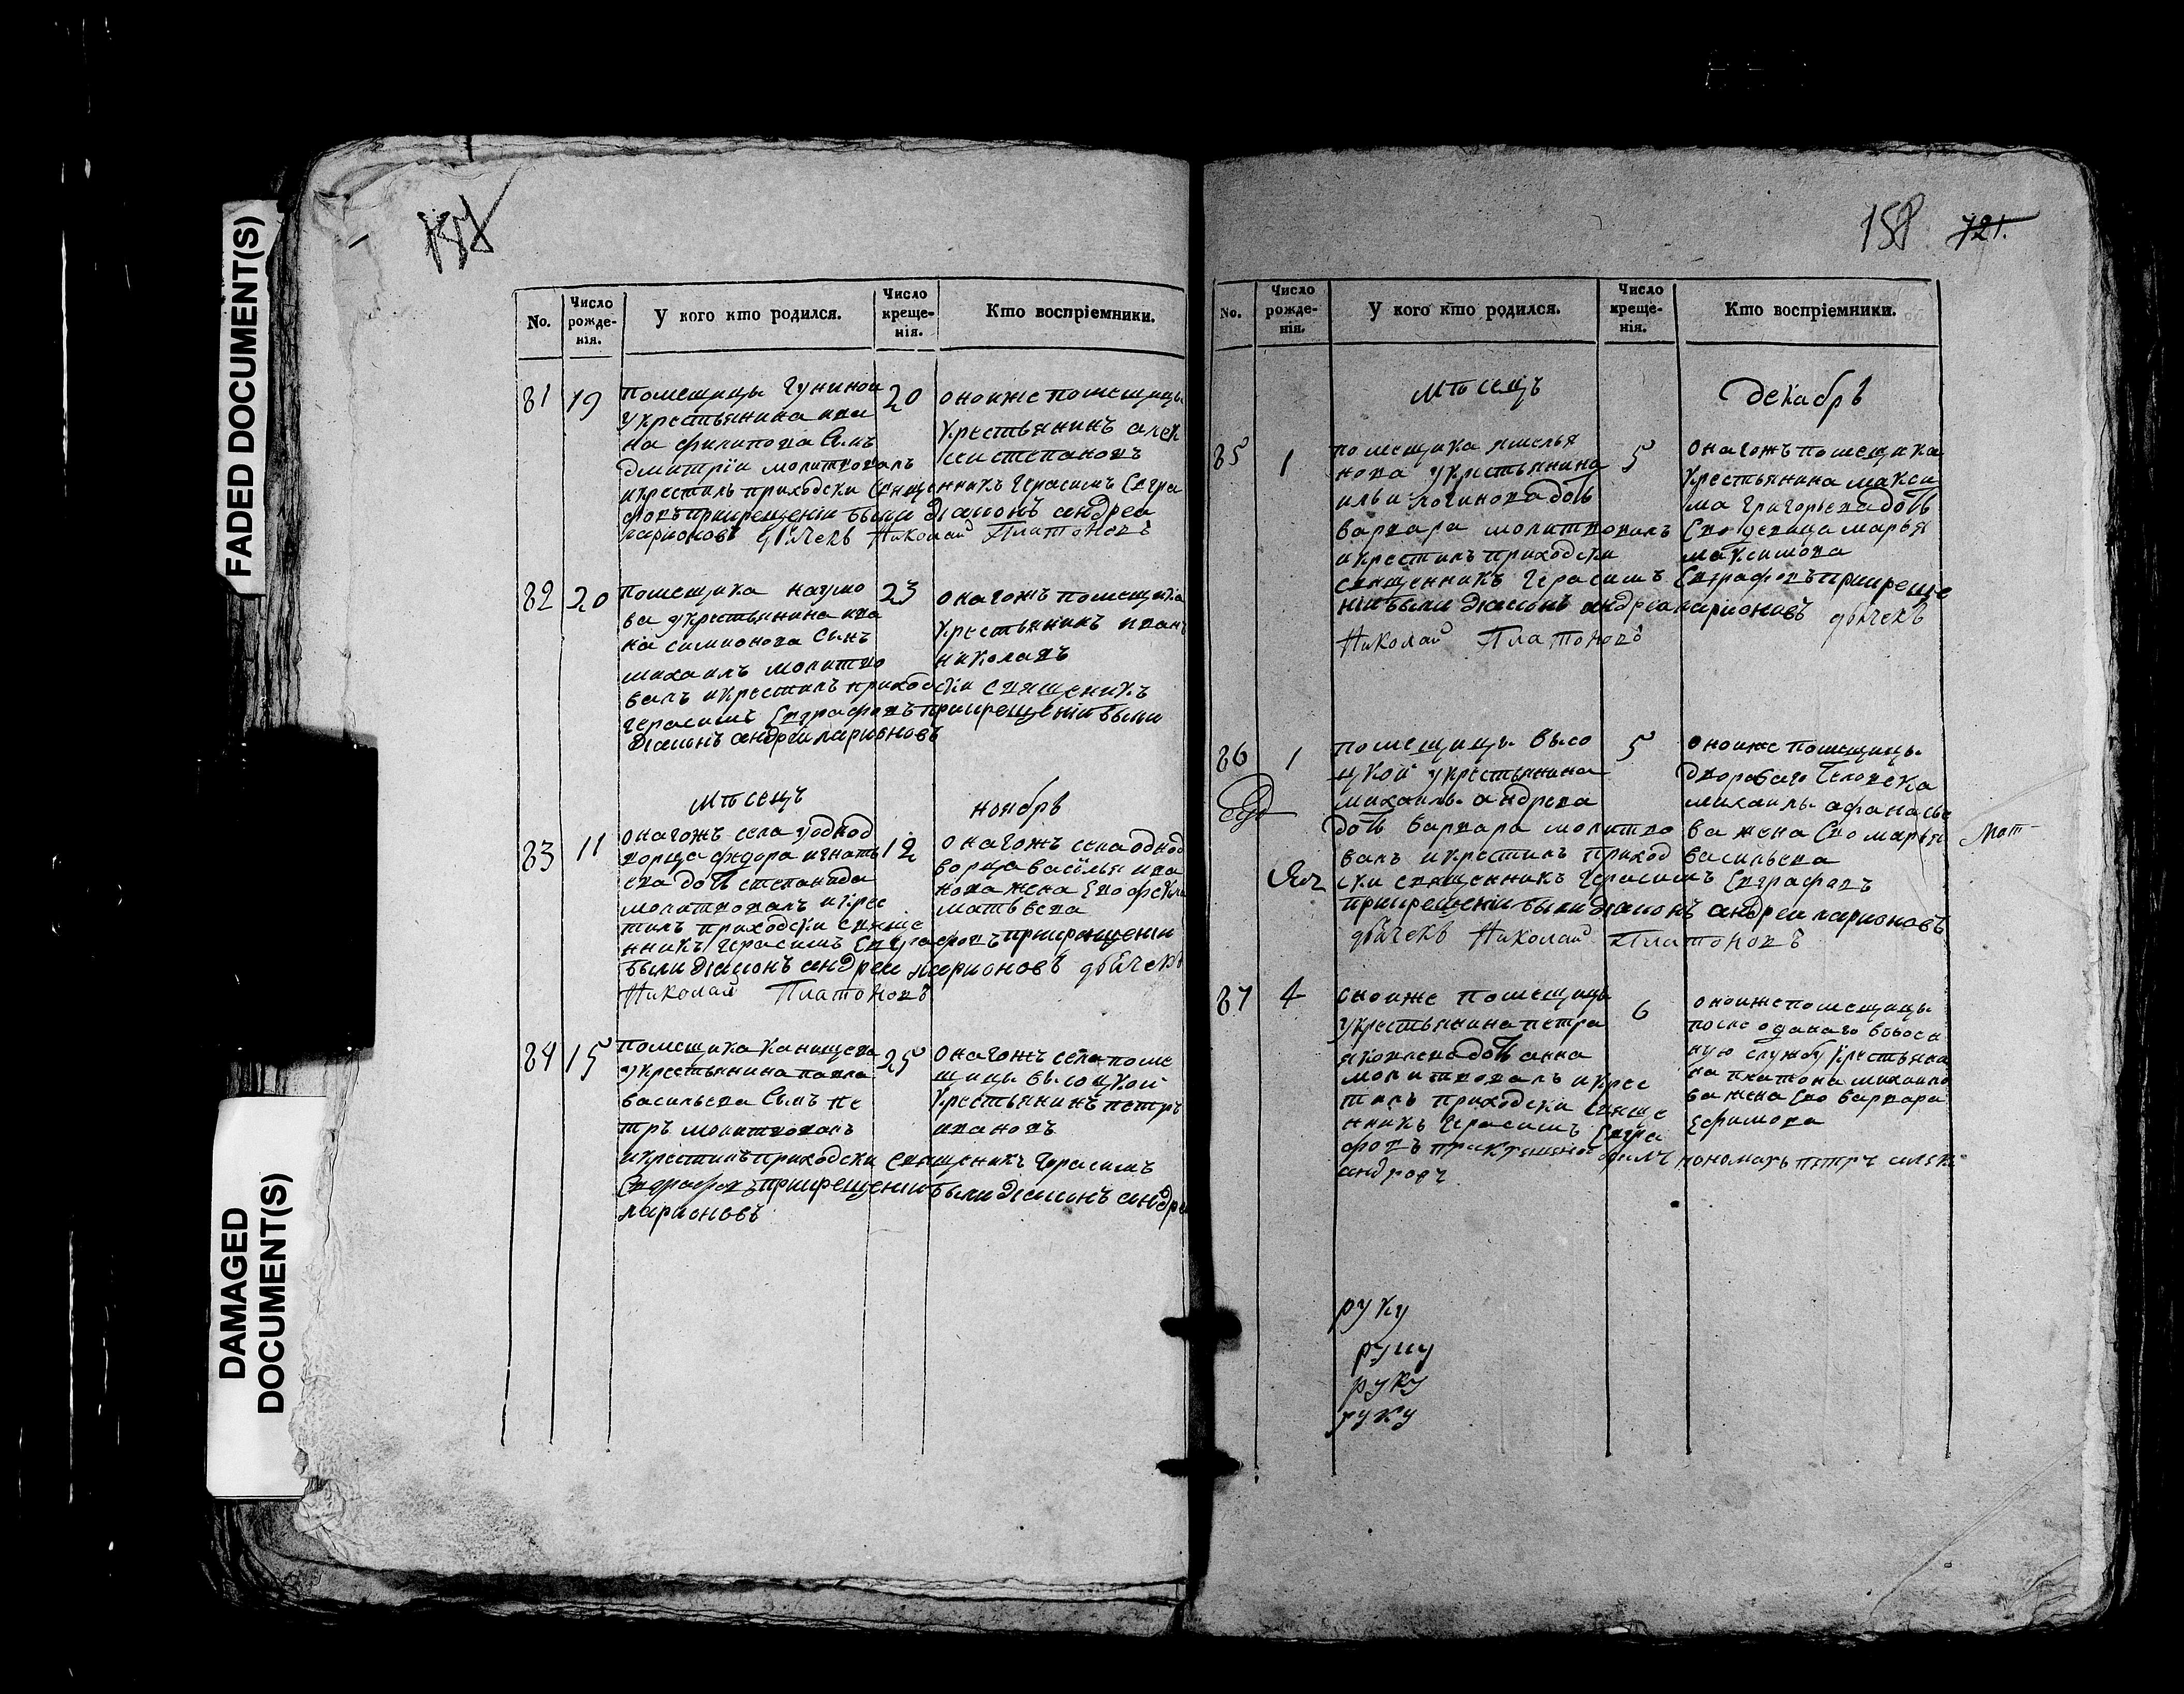 FADED DOCUMENT(S)
DAMAGED
DOCUMENT(S)
No.
Число
рожде-
нія.
У кого кто родился.
Число
креще-
нія.
Кто воспріемники.
81 19
помещицы Гуниной
укрестьянина ива
на филипова Сынъ
дмитріи молитвовалъ
икрестилъ приходски Священникъ Герасимъ Евгра
фовъ прикрещеніи были діаконъ андреи
ларионовъ дьячекъ Николай Платоновъ
20
оноиже помещицы
крестьянинъ алек
сеи степановъ
82 20
помещика наумо
ва укрестьянина ива
на симионова Сынъ
михаилъ молитво
валъ икрестилъ приходски священикъ
герасимъ Евграфовъ прикрещеніи были
діаконъ андреи ларионовъ
23
онагожъ помещика
крестьянинъ иванъ
николаевъ
мѣсецъ ноябрь
83 11
онагожъ села уоднод
ворца федора игнать
ева дочь степанида
молитвовалъ икрес
тилъ приходски свяще
нникъ Герасимъ Евграфовъ прикрещеніи
были діаконъ андреи ларионовъ дьячекъ
Николай Платоновъ
12
онагожъ села однод
ворца василья ива
нова жена Ево фекла
матвеева
84 15
помещика канищева
укрестьянина павла
васильева Сынъ пе
тръ молитвовалъ
икрестилъ приходски священикъ Герасимъ
Евграфовъ прикрещеніи были діаконъ андреи
ларионовъ
25
онагожъ села поме
щицы высоцкой
крестьянинъ петръ
ивановъ
158 721.
No.
Число
рожде-
нія.
У кого кто родился.
Число
креще-
нія.
Кто воспріемники.
мѣсецъ декабрь
85 1
помещика
нова укрестьянина
ильи логинова дочь
варвара молитвовалъ
икрестилъ приходски
священникъ Герасимъ Евграфовъ прикреще
ніи были діаконъ андреи ларионовъ дьячекъ
Николай Платоновъ
5
онагожъ помещика
крестьянина макси
ма григорьева дочь
Ево девица марья
максимова
86 1
помещицы высо
цкой укрестьянина
михаилы андреева
дочь варвара молитво
валъ икрестилъ приход
ски священникъ Герасимъ Евграфовъ
прикрещеніи были діаконъ андреи ларионовъ
дьячекъ Николай Платоновъ
5
оноиже помещицы
дворового человека
михаилы афанасье
ва жена Ево марья
васильева
87 4
оноиже помещицы
укрестьянина петра
яковлева дочь анна
молитвовалъ икрес
тилъ приходски свяще
нникъ Герасимъ Евгра
фовъ прикрещеніи былъ пономарь петръ алекс
андровъ
6
оноиже помещицы
после отданаго
ную службу крестьяни
на платона михаило
ва жена Ево варвара
Ефимова
руку
руку
руку
руку